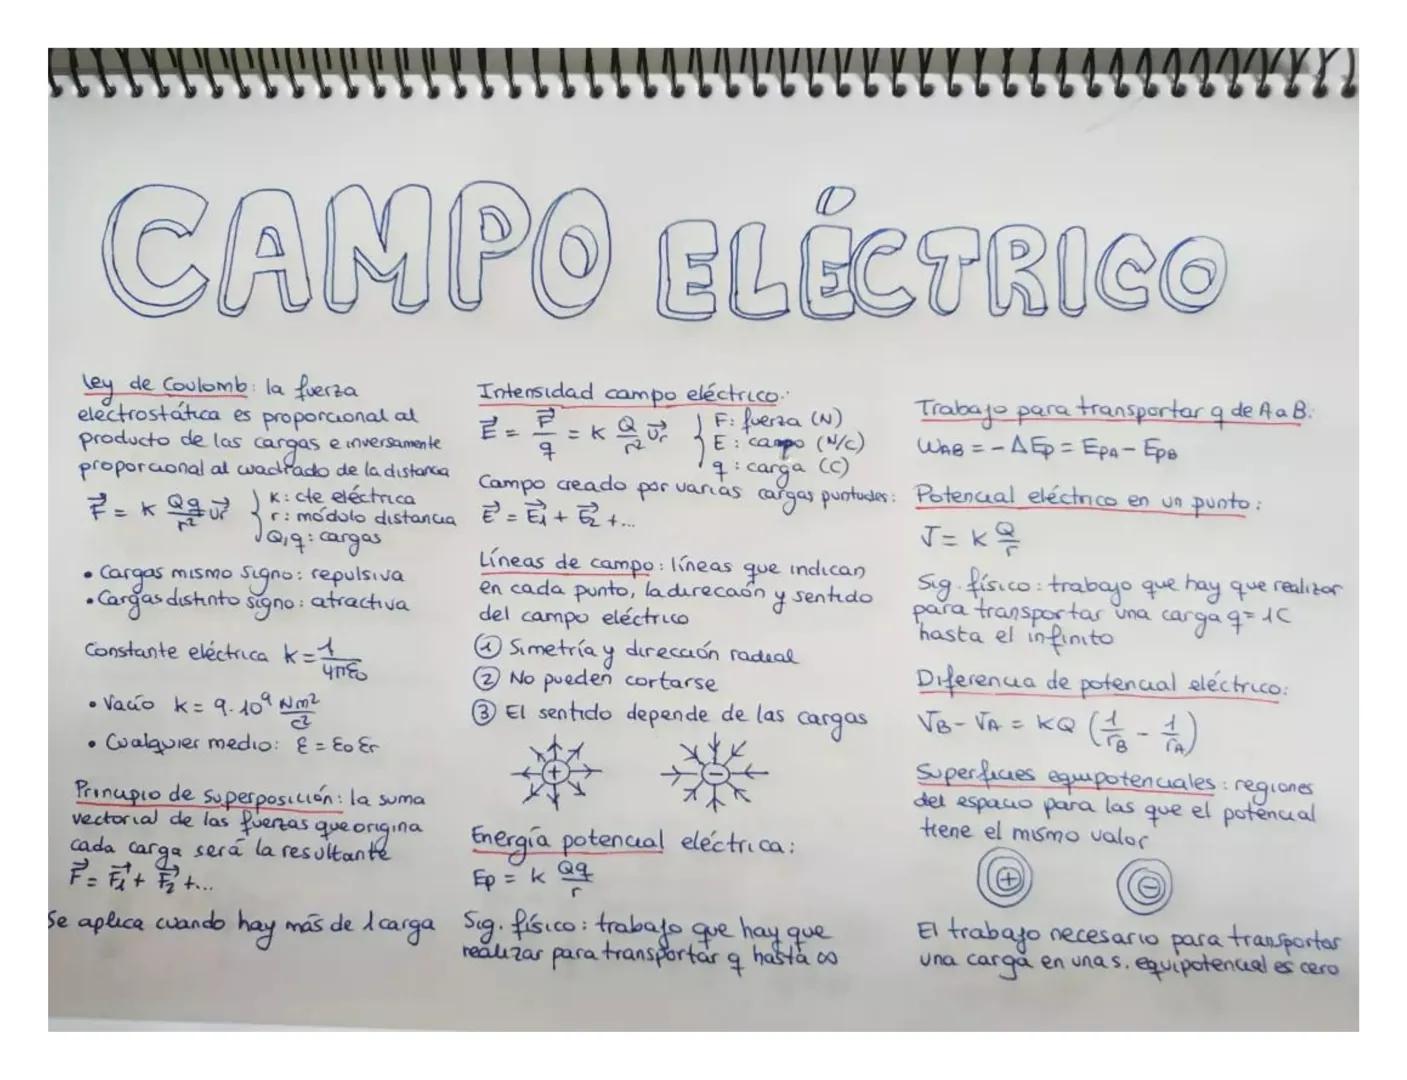 CAMPO ELÉCTRICO
Ley de Coulomb: la fuerza
electrostática es proporcional al
producto de las cargas e inversamente
proporcional al cuadrado de la distancia
F⃗ = K Qq/r² u⃗r
K: cte eléctrica
r: módulo distancia
Q,q: cargas
• Cargas mismo signo: repulsiva
• Cargas distinto signo: atractiva
Constante eléctrica K = 1/4πε₀
• Vacío K = 9·10⁹ Nm²/C²
• Cualquier medio: ε = ε₀ εr
Principio de superposición: la suma
vectorial de las fuerzas que origina
cada carga será la resultante
F⃗ = F⃗₁ + F⃗₂ + ...
Se aplica cuando hay más de 1 carga
Intensidad campo eléctrico:
E⃗ = F⃗/q = K Q/r² u⃗r
F: fuerza (N)
E: campo (N/C)
q: carga (C)
Campo creado por varias cargas puntuales:
E⃗ = E⃗₁ + E⃗₂ + ...
Líneas de campo: líneas que indican
en cada punto, la dirección y sentido
del campo eléctrico
① Simetría y dirección radial
② No pueden cortarse
③ El sentido depende de las cargas
+ −
Energía potencial eléctrica:
Ep = K Qq/r
Sig. físico: trabajo que hay que
realizar para transportar q hasta ∞
Trabajo para transportar q de A a B:
WAB = - ΔEp = EPA - EPB
Potencial eléctrico en un punto:
V = K Q/r
Sig. físico: trabajo que hay que realizar
para transportar una carga q = 1C
hasta el infinito
Diferencia de potencial eléctrico:
VB - VA = KQ (1/rB - 1/rA)
Superficies equipotenciales: regiones
del espacio para las que el potencial
tiene el mismo valor
+ −
El trabajo necesario para transportar
una carga en una s. equipotencial es cero